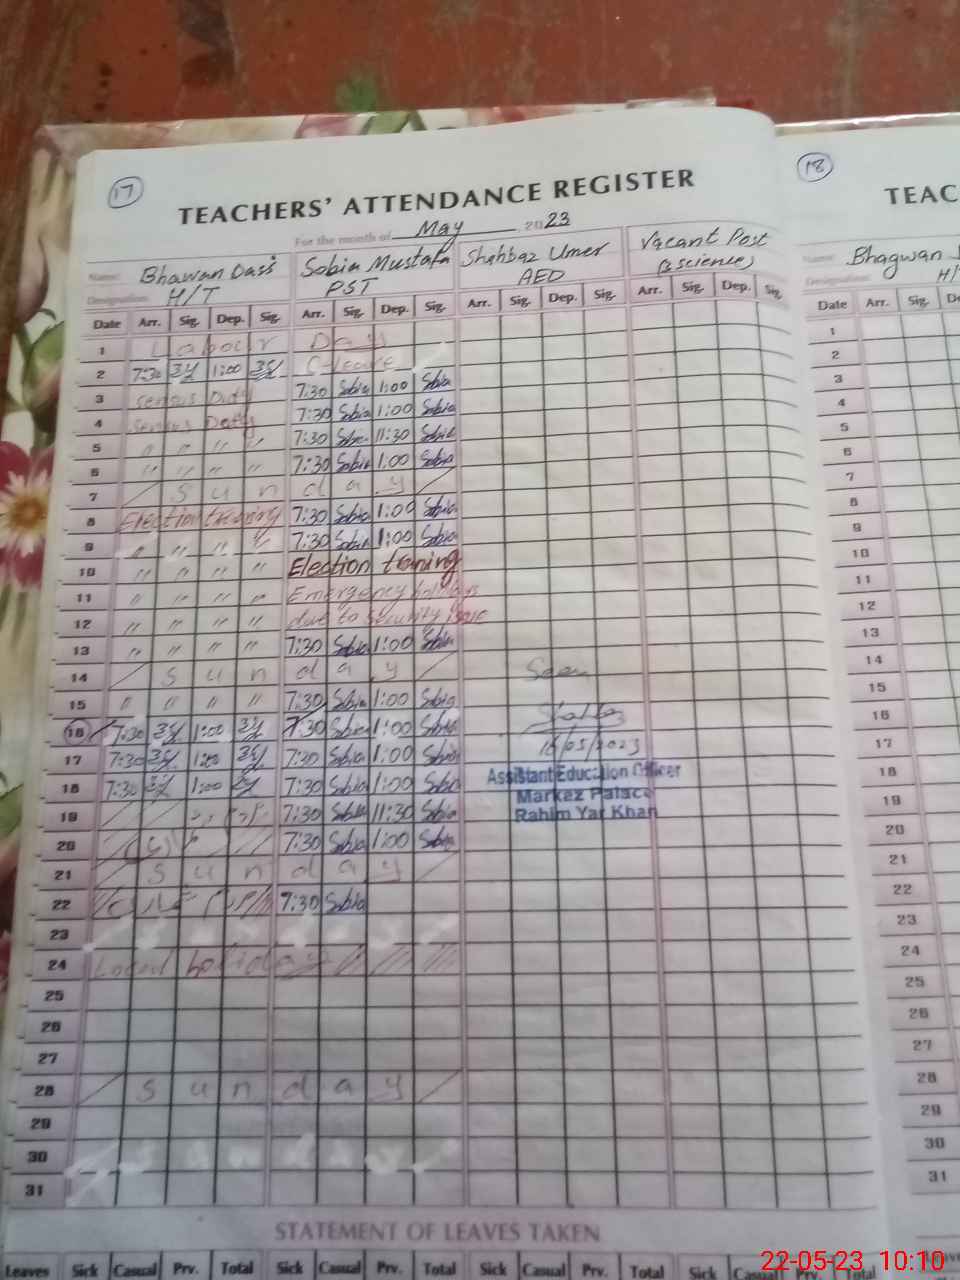 17
18
TEACHERS' ATTENDANCE REGISTER
TEAC
For the month of May 2023
Name: Bhawan Dass Sobia Mustafa Shahbaz Umer Vacant Post
Designation: H/T PST AED (science)
Name: Bhagwan
Designation: H/
Date Arr. Sig. Dep. Sig. Arr. Sig. Dep. Sig. Arr. Sig. Dep. Sig. Arr. Sig. Dep. Sig.
Date Arr. Sig. De
1 Labour Day
2 7:30 1:00 C-leave
3 sensus Duty 7:30 Sobia 1:00 Sobia
4 sensus Duty 7:30 Sobia 1:00 Sobia
5 " " " " 7:30 Sobia 11:30 Sobia
6 " " " " 7:30 Sobia 1:00 Sobia
7 Sunday
8 Election training 7:30 Sobia 1:00 Sobia
9 " " " " 7:30 Sobia 1:00 Sobia
10 " " " " Election traning
11 " " " " Emergency holidays
12 " " " " due to security issue
13 " " " " 7:30 Sobia 1:00 Sobia
14 Sunday Seen
15 " " " " 7:30 Sobia 1:00 Sobia
16 7:30 1:00 7:30 Sobia 1:00 Sobia
16/05/2023
17 7:30 1:00 7:30 Sobia 1:00 Sobia
Assistant Education Officer
18 7:30 1:00 7:30 Sobia 1:00 Sobia
Markez Palace
19 7:30 Sobia 11:30 Sobia
Rahim Yar Khan
20 7:30 Sobia 1:00 Sobia
21 Sunday
22 7:30 Sobia
23
24 Local holiday
25
26
27
28 Sunday
29
30
31
1
2
3
4
5
6
7
8
9
10
11
12
13
14
15
16
17
18
19
20
21
22
23
24
25
26
27
28
29
30
31
STATEMENT OF LEAVES TAKEN
Leaves Sick Casual Prv. Total Sick Casual Prv. Total Sick Casual Prv. Total Sick Casual Prv. Total
Leaves Sick
22-05-23 10:10